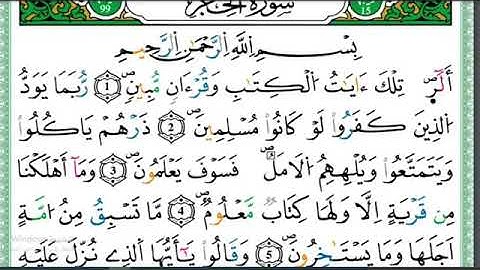 سورة الحجر
99
15
بِسْمِ اللَّهِ الرَّحْمَٰنِ الرَّحِيمِ
أَلَٓرۖ تِلْكَ ءَايَٰتُ الْكِتَٰبِ وَقُرْءَانٖ مُّبِينٖۖ 1 رُّبَمَا يَوَدُّ
الذِينَ كَفَرُواْ لَوْ كَانُواْ مُسْلِمِينَۖ 2 ذَرْهُمْ يَاكُلُواْ
وَيَتَمَتَّعُواْ وَيُلْهِهِمُ الَامَلُۖ فَسَوْفَ يَعْلَمُونَۖ 3 وَمَآ أَهْلَكْنَا
مِن قَرْيَةٍ اِلَّا وَلَهَا كِتَابٞ مَّعْلُومٞۖ 4 مَّا تَسْبِقُ مِنُ ا۟مَّةٍ
اَجَلَهَا وَمَا يَسْتَٰخِرُونَۖ 5 وَقَالُواْ يَٰٓأَيُّهَا الذِے نُزِّلَ عَلَيْهِ